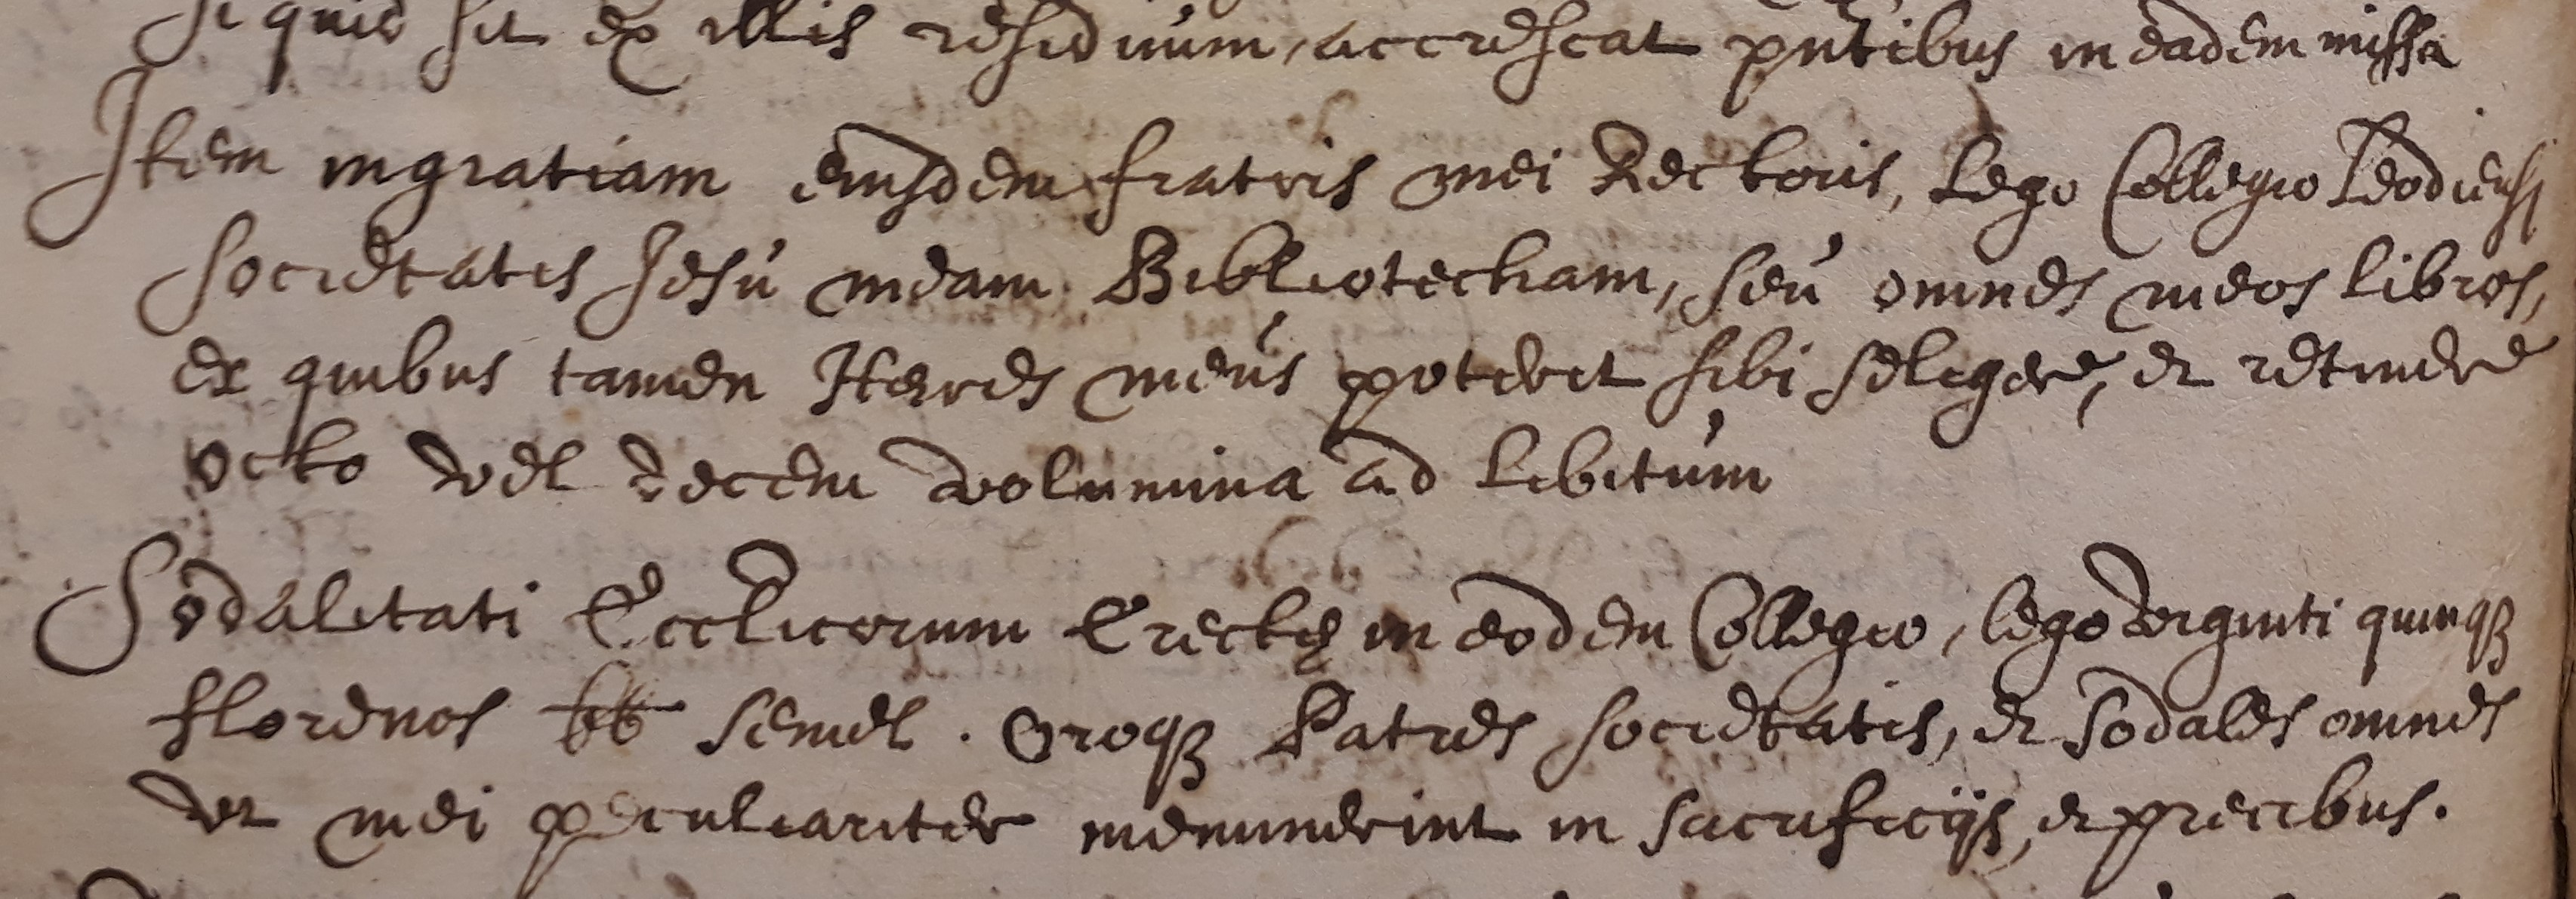 si quid sit ex illis residuum, accrescat pntibus in eadem missa
Item in gratiam eiusdem fratris mei Rectoris, Lego Collegio Leodiensi
societatis Jesu meam Bibliotecham, seu omnes meos libros,
ex quibus tamen Heres meus poterit sibi seligere, et retinere
octo vel decem volumina ad libitum
Sodalitati Eccl̄icorum Erectę in eodem Collegio, lego viginti quinqꝫ
florenos bb semel. Oroqꝫ Patres societatis, et Sodales omnes
ut mei peculiariter meminerint in sacrificijs, et precibus.